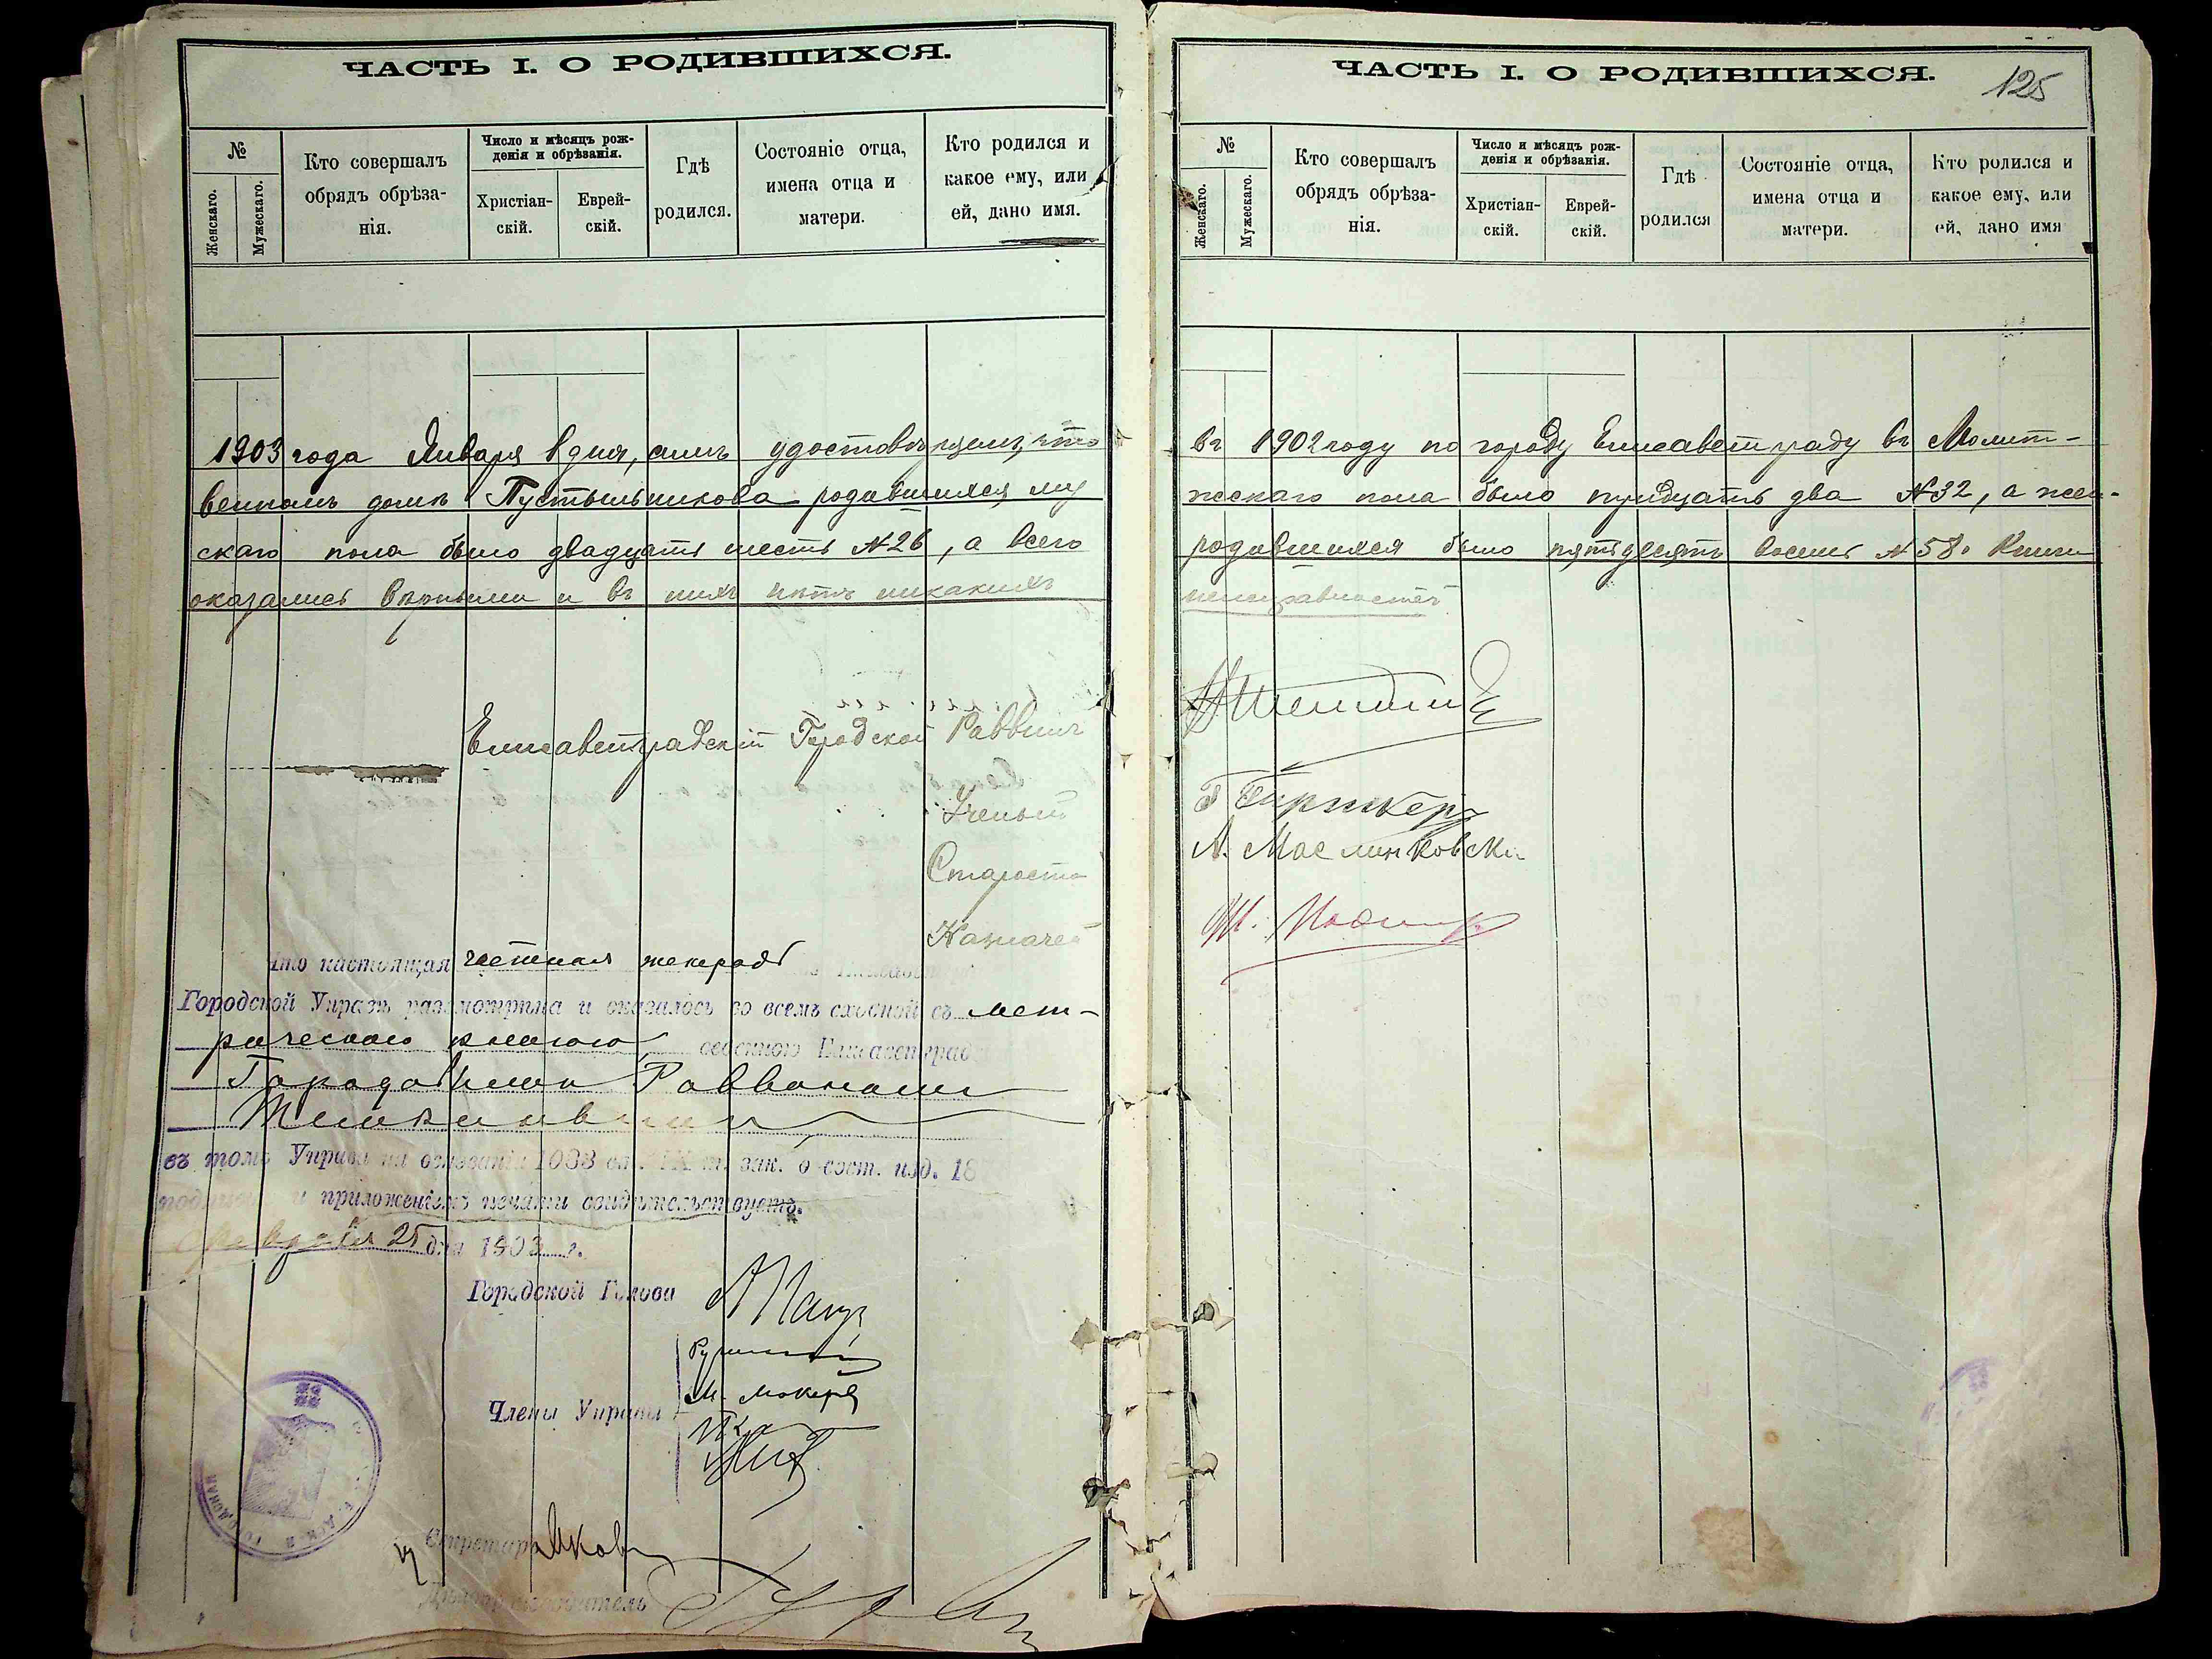 ЧАСТЬ I. О РОДИВШИХСЯ.
№
Женскаго.
Мужескаго.
Кто совершалъ
обрядъ обрѣза-
нія.
Число и мѣсяцъ рож-
денія и обрѣзанія.
Христіан-
скій.
Еврей-
скій.
Гдѣ
родился.
Состояніе отца,
имена отца и
матери.
Кто родился и
какое ему, или
ей, дано имя.
1903 года Января 1 дня, симъ удостовѣряемъ, что
венномъ домѣ Пустыльникова родившихся му
скаго пола было двадцать шесть №26, а всего
оказались вѣрными и въ нихъ нѣтъ никакихъ
Елисаветградскій Городской Раввинъ
Ученый
Староста
Казначей
что настоящая четная тетрадь
Городской Управѣ разсмотрѣна и оказалось во всемъ сходной съ мет-
рическою книгою веденною Елисаветград
Городовымъ Раввиномъ
въ томъ Управа на основаніи 1083 ст. IX т. зак. о сост. изд. 18
и приложеніемъ печати свидѣтельствуетъ.
Февраля 25 дня 1903 г.
Городской Голова
Члены Управы
М. Макеев
Секретарь
ЧАСТЬ I. О РОДИВШИХСЯ.
125
№
Женскаго.
Мужескаго.
Кто совершалъ
обрядъ обрѣза-
нія.
Число и мѣсяцъ рож-
денія и обрѣзанія.
Христіан-
скій.
Еврей-
скій.
Гдѣ
родился
Состояніе отца,
имена отца и
матери.
Кто родился и
какое ему, или
ей, дано имя
въ 1902 году по городу Елисаветграду въ Молит-
жескаго пола было тридцать два №32, а жен-
родившихся было пятьдесятъ восемь №58. Книги
неисправностей
А. Маслинковски